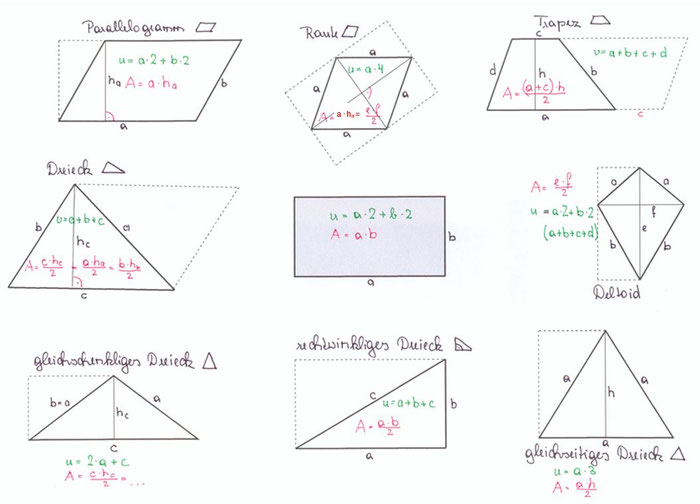 Parallelogramm
u = a·2 + b·2
hₐ
A = a·hₐ
b
a
Raute
a
u = a·4
a
a
A = a·hₐ = e·f/2
a
Trapez
c
u = a+b+c+d
d
h
b
A = (a+c)·h/2
a
c
Dreieck
u = a+b+c
b
a
h_c
A = c·h_c/2 = a·hₐ/2 = b·h_b/2
c
u = a·2 + b·2
A = a·b
b
a
A = e·f/2
u = a·2 + b·2
(a+b+c+d)
a
a
f
e
b
b
Deltoid
gleichschenkliges Dreieck
b=a
a
h_c
c
u = 2·a + c
A = c·h_c/2 = ...
rechtwinkliges Dreieck
c
u = a+b+c
b
A = a·b/2
a
a
a
h
a
gleichseitiges Dreieck
u = a·3
A = a·h/2